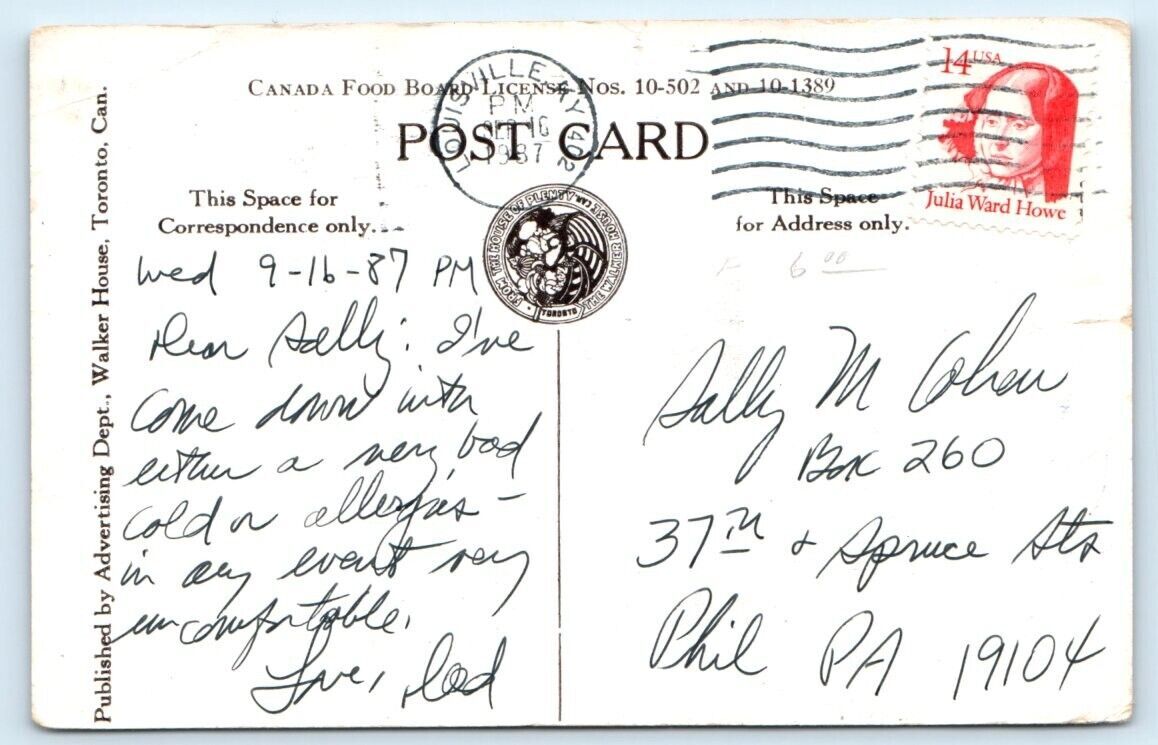 Canada Food Board License Nos. 10-502 and 10-1389
POST CARD
LOUISVILLE, KY 402
PM
SEP 16
1987
14 USA
Julia Ward Howe
This Space for
Correspondence only.
This Space
for Address only.
FROM THE HOUSE OF PLENTY
THE WALKER HOUSE
TORONTO
Published by Advertising Dept., Walker House, Toronto, Can.
6 00
Wed 9-16-87 PM
Dear Sally: I've
come down with
either a very bad
cold or allergies -
in any event very
uncomfortable.
Love, Dad
Sally M Cohen
Box 260
37TH + Spruce Sts
Phil PA 19104